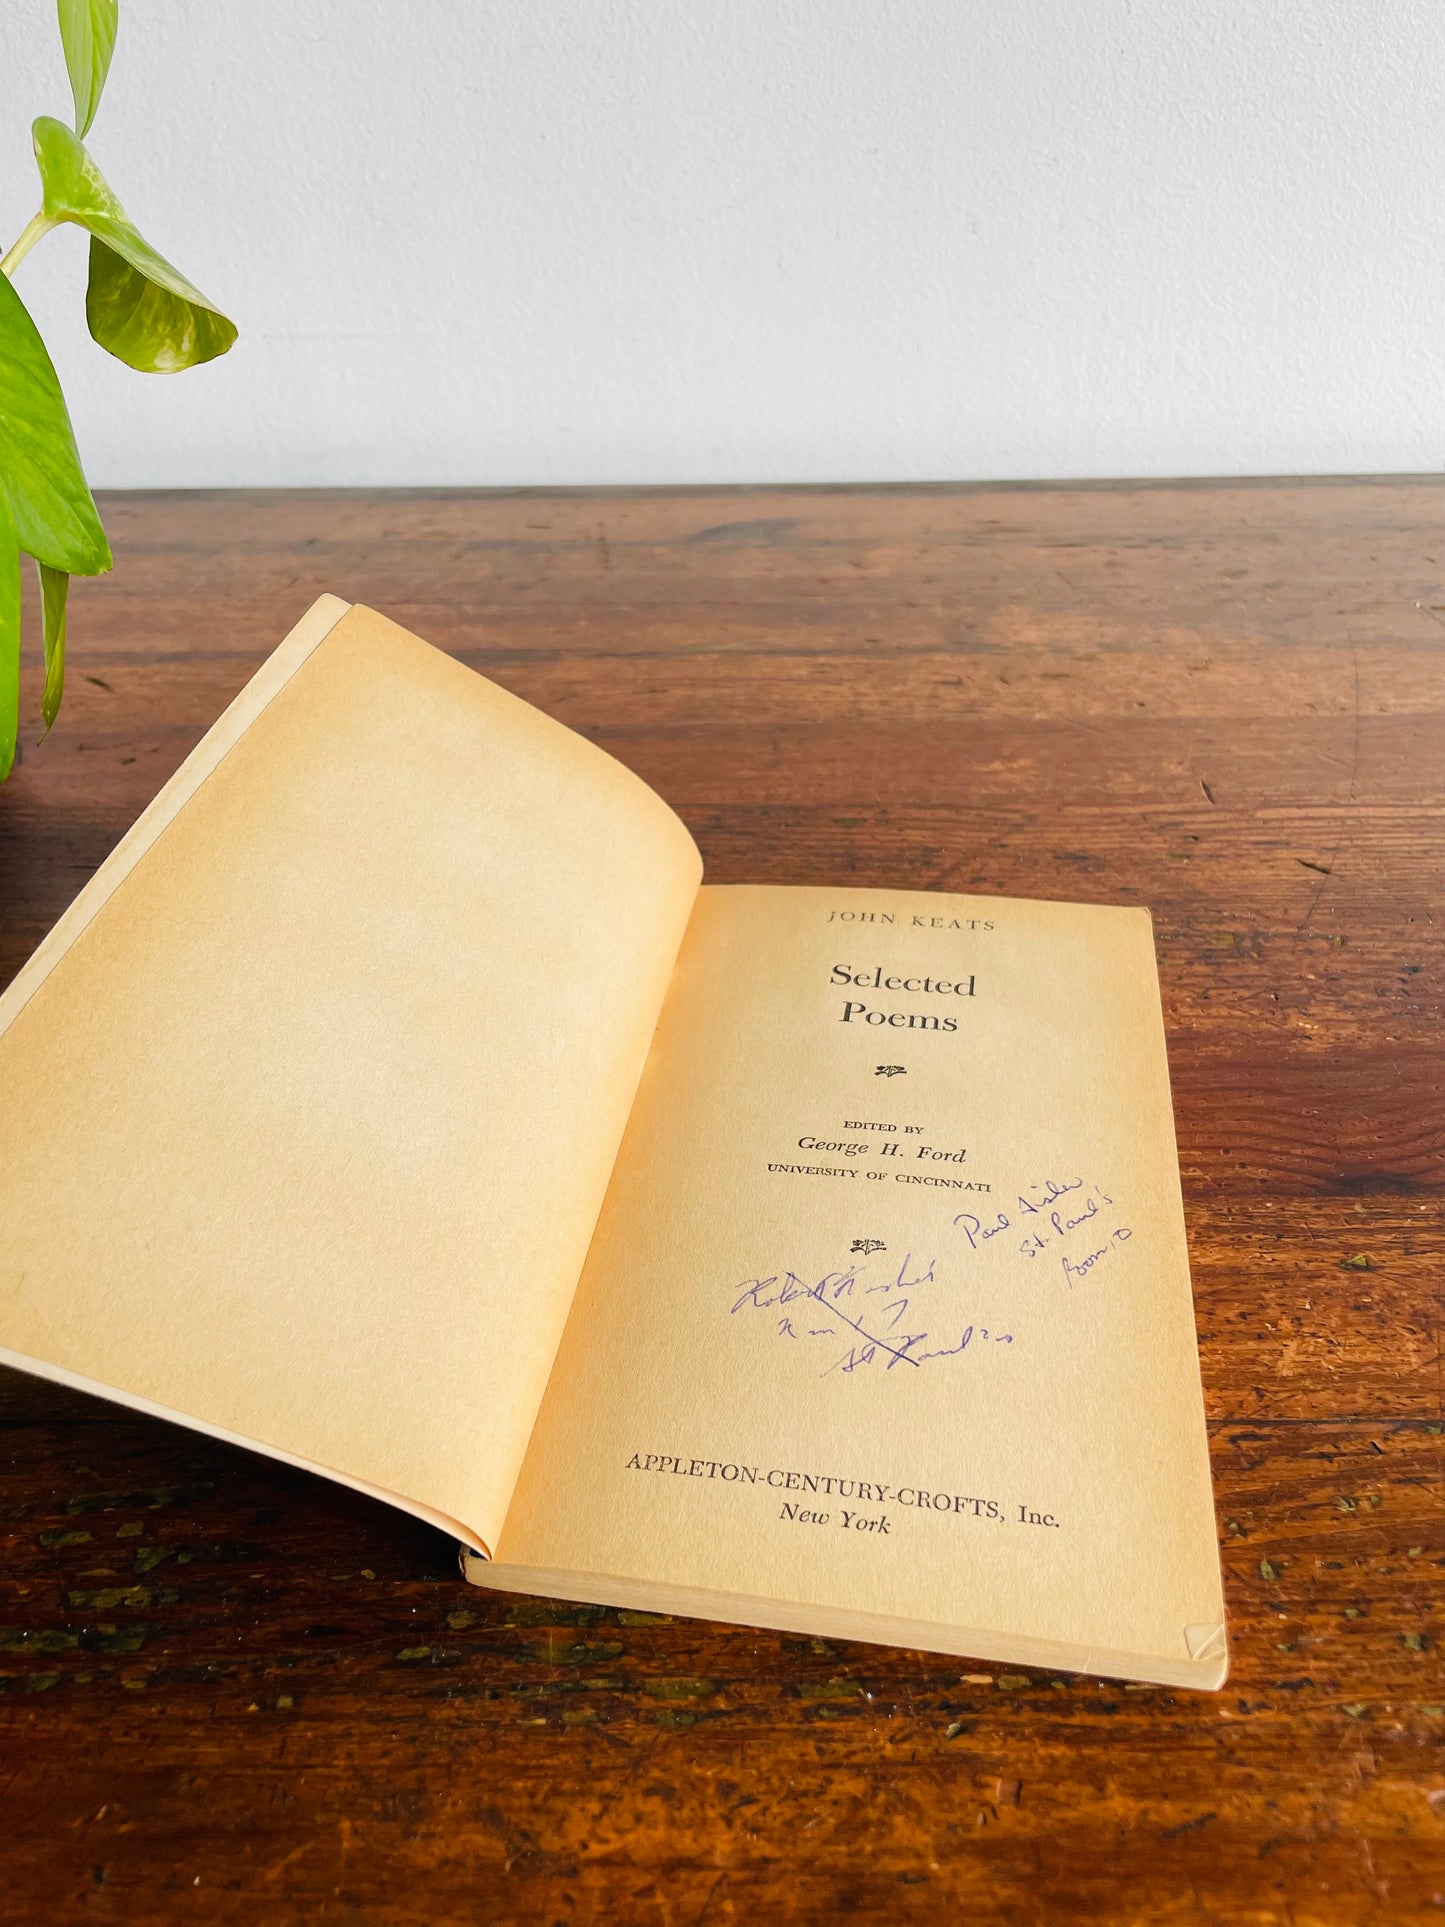 JOHN KEATS
Selected
Poems
EDITED BY
George H. Ford
UNIVERSITY OF CINCINNATI
Paul
St. Paul's
St Paul's
APPLETON-CENTURY-CROFTS, Inc.
New York